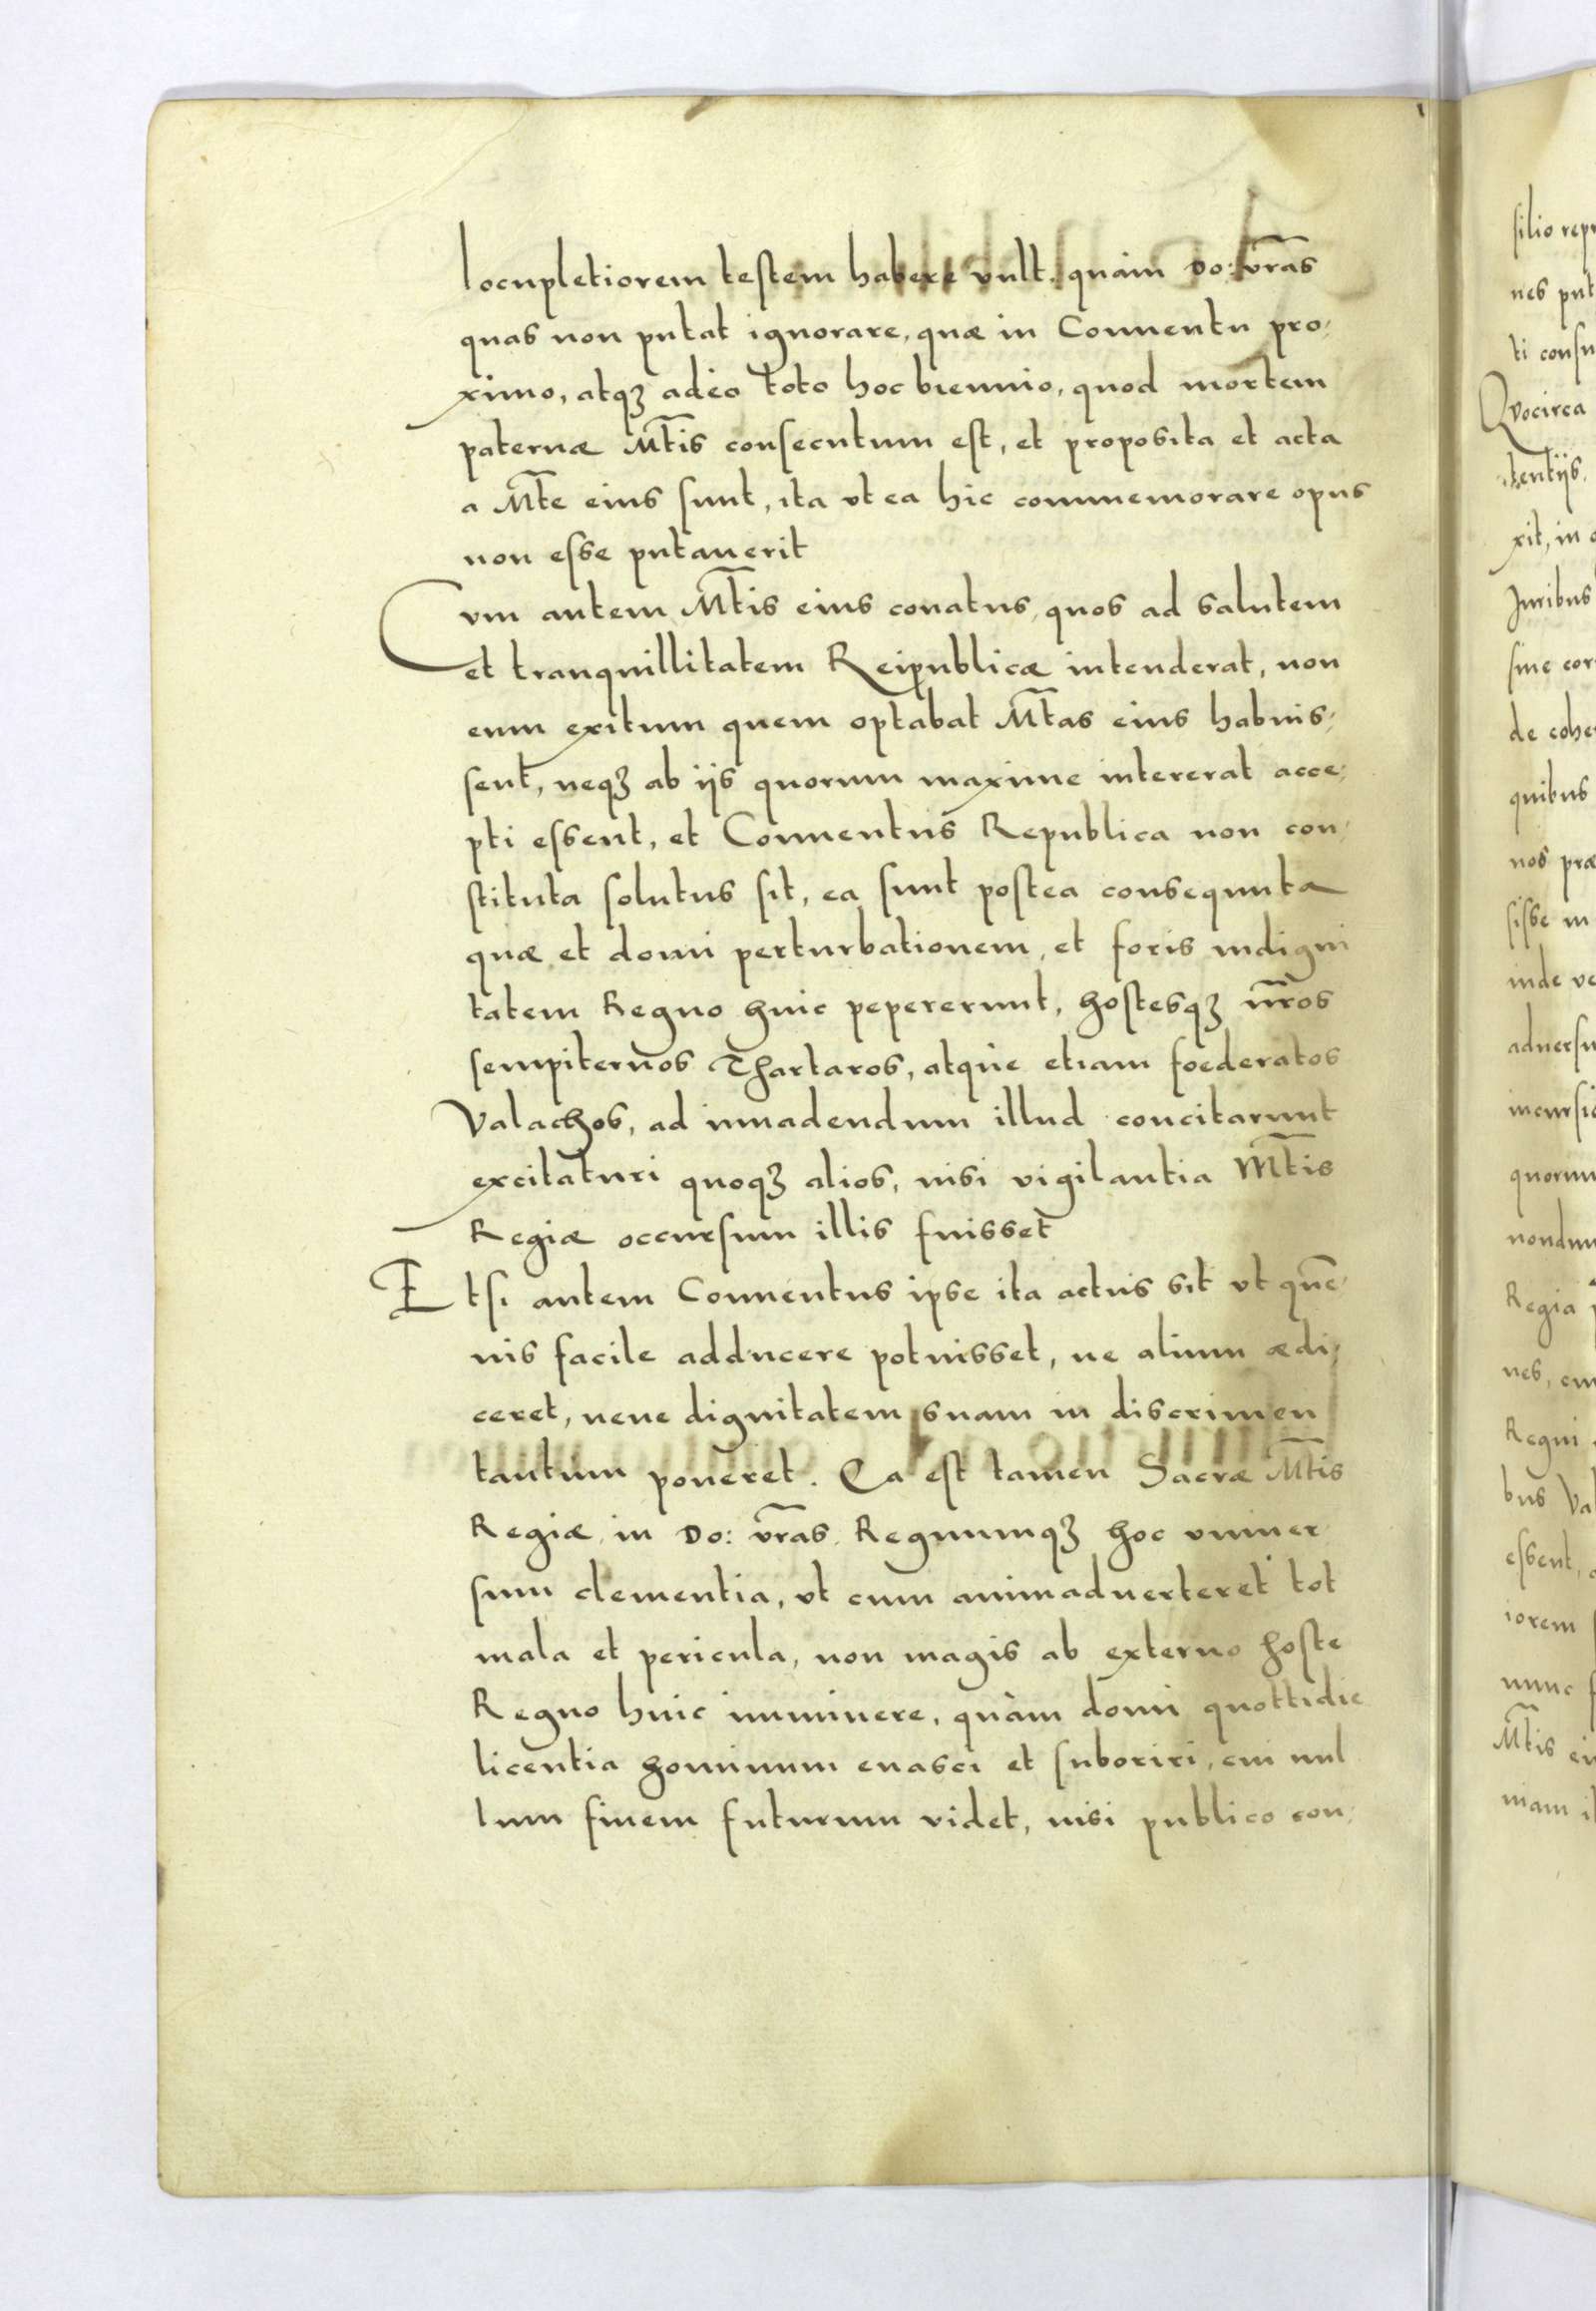 locupletiorem testem habere vult, quàm Do: vr̃as
quas non putat ignorare, quæ in Conuentu pro,
ximo, atqꝫ adeo toto hoc biennio, quod mortem
paternæ Mt̃is consecutum est, et proposita et acta
a Mt̃e eius sunt, ita vt ea hic commemorare opus
non esse putauerit
Cvm autem Mt̃is eius conatus, quos ad salutem
et tranquillitatem Reipublicæ intenderat, non
eum exitum quem optabat Mt̃as eius habuis,
sent, neqꝫ ab ijs quorum maxime intererat acce,
pti essent, et Conuentus Republica non con,
stituta solutus sit, ea sunt postea consequuta
quæ et domi perturbationem, et foris indigni
tatem Regno huic pepererunt, hostesqꝫ nr̃os
sempiternos Thartaros, atque etiam foederatos
Valachos, ad inuadendum illud concitarunt
excitaturi quoqꝫ alios, nisi vigilantia Mt̃is
Regiæ occursum illis fuisset
Etsi autem Conuentus ipse ita actus sit vt que,
uis facile adducere potuisset, ne alium ædi,
ceret, neue dignitatem suam in discrimen
tantum poneret. Ea est tamen Sacræ Mt̃is
Regiæ in Do: vr̃as Regnumqꝫ hoc vniuer
sum clementia, vt cum animaduerteret tot
mala et pericula, non magis ab externo hoste
Regno huic imminere, quàm domi quottidie
licentia hominum enasci et suboriri, cui nul
lum finem futurum videt, nisi publico con,
silio
nes
ti
Qvocirca
xit, in
Juribus
sine
de
quibus
nos
sisse in
inde
quorum
Regia
nes,
Regni
bus
essent,
iorem
nunc
Mt̃is